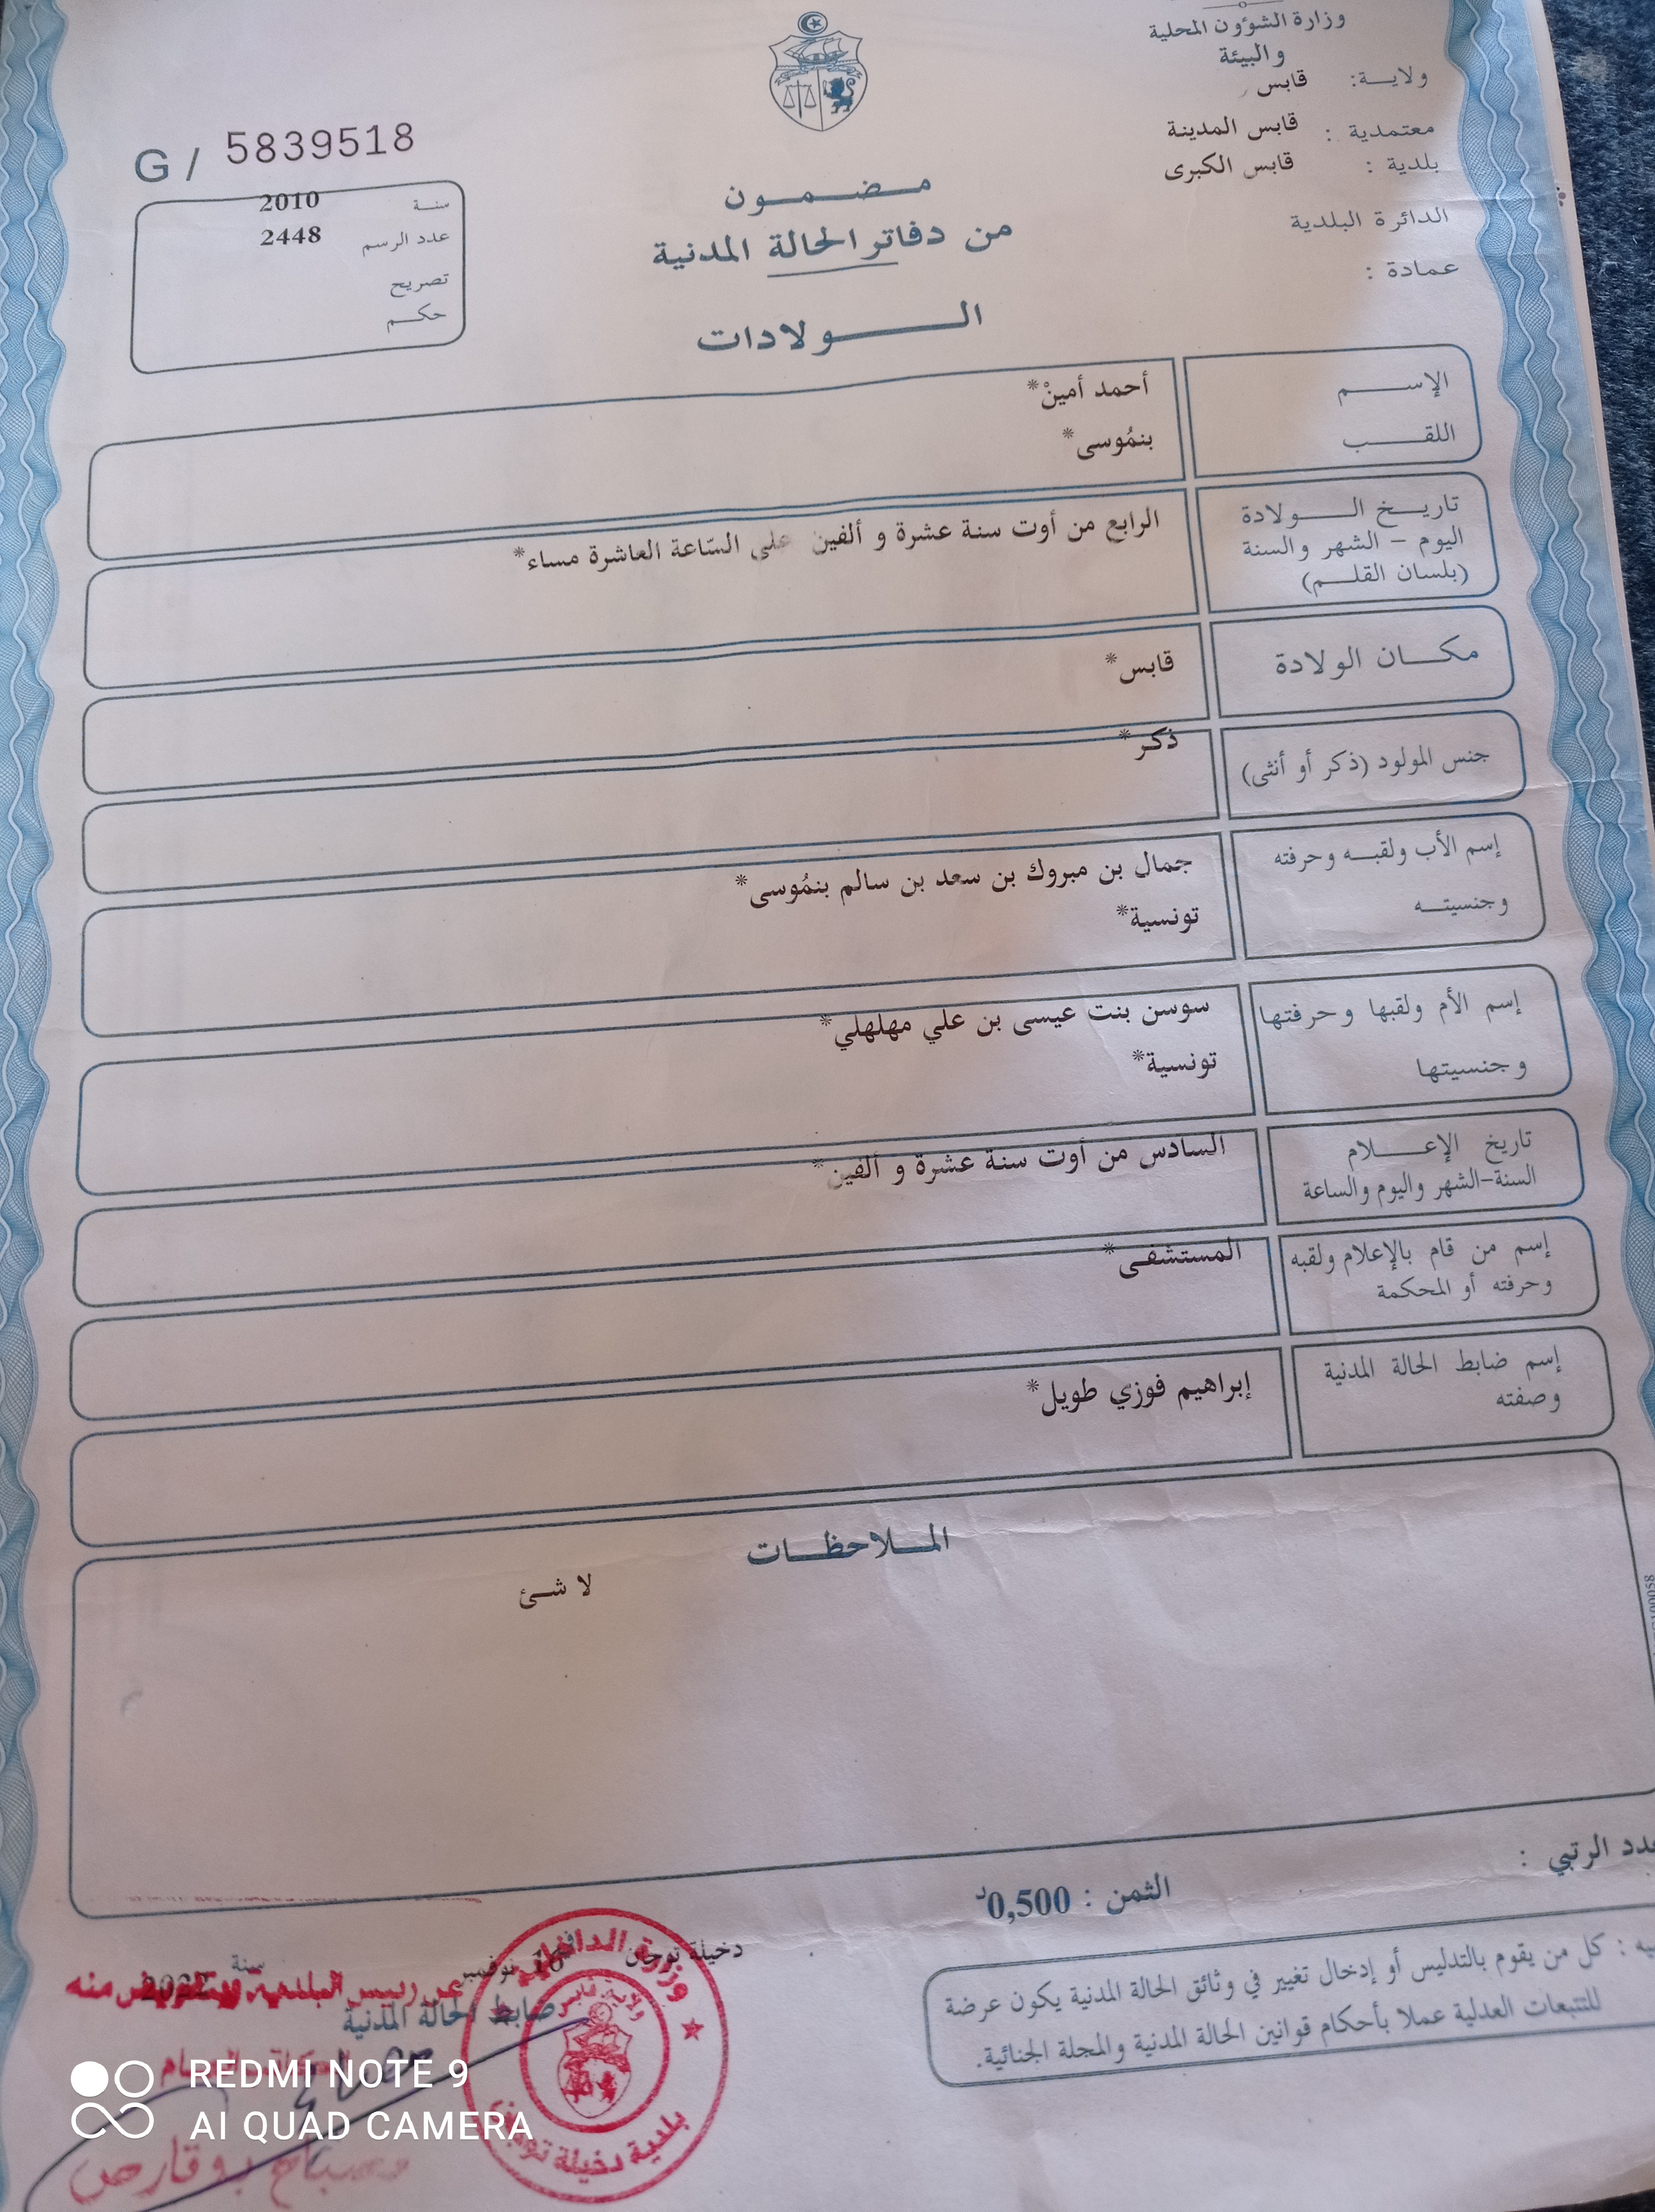 وزارة الشؤون المحلية
والبيئة
ولايـــة: قابس
معتمدية : قابس المدينة
بلدية : قابس الكبرى
الدائرة البلدية
عمادة :
G / 5839518
سنـة 2010
عدد الرسم 2448
تصريح
حكـــم
مـــضـــمـــون
من دفاتر الحالة المدنية
الـــــولادات
الإســـــم أحمد أمينْ*
اللقـــــب بنمُوسى*
تاريـــخ الـــــولادة الرابع من أوت سنة عشرة و ألفين على السّاعة العاشرة مساء*
اليوم - الشهر والسنة
(بلسان القلـــم)
مكـــان الولادة قابس*
جنس المولود (ذكر أو أنثى) ذكر*
إسم الأب ولقبـــه وحرفته جمال بن مبروك بن سعد بن سالم بنمُوسى*
وجنسيتـــه تونسية*
إسم الأم ولقبها وحرفتها سوسن بنت عيسى بن علي مهلهلي*
وجنسيتها تونسية*
تاريخ الإعـــــلام السادس من أوت سنة عشرة و ألفين*
السنة-الشهر واليوم والساعة
إسم من قام بالإعلام ولقبه المستشفى*
وحرفته أو المحكمة
إسم ضابط الحالة المدنية إبراهيم فوزي طويل*
وصفته
المـــلاحظـــات
لا شئ
الرتبي :
الثمن : 0,500د
كل من يقوم بالتدليس أو إدخال تغيير في وثائق الحالة المدنية يكون عرضة
للتتبعات العدلية عملا بأحكام قوانين الحالة المدنية والمجلة الجنائية.
دخيلة توجان في 16 نوفمبر سنة 2022
عن رئيس البلدية وبتفويض منه
ضابط الحالة المدنية
وزارة الداخلية
ولاية قابس
بلدية دخيلة توجان
مصباح بوقارص
REDMI NOTE 9
AI QUAD CAMERA